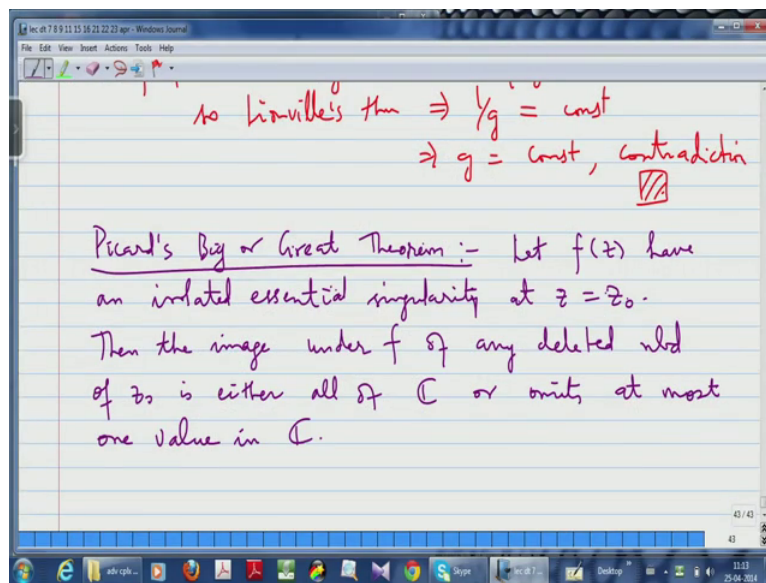 lec dt 7 8 9 11 15 16 21 22 23 apr - Windows Journal
File Edit View Insert Actions Tools Help
so Liouville's thm ⇒ 1/g = const
⇒ g = const, contradiction
Picard's Big or Great Theorem :- Let f(z) have
an isolated essential singularity at z = z₀.
Then the image under f of any deleted nbd
of z₀ is either all of ℂ or omits at most
one value in ℂ.
43 / 43
43
adv cplx ...
Skype
lec dt 7 ...
Desktop
11:13
25-04-2014